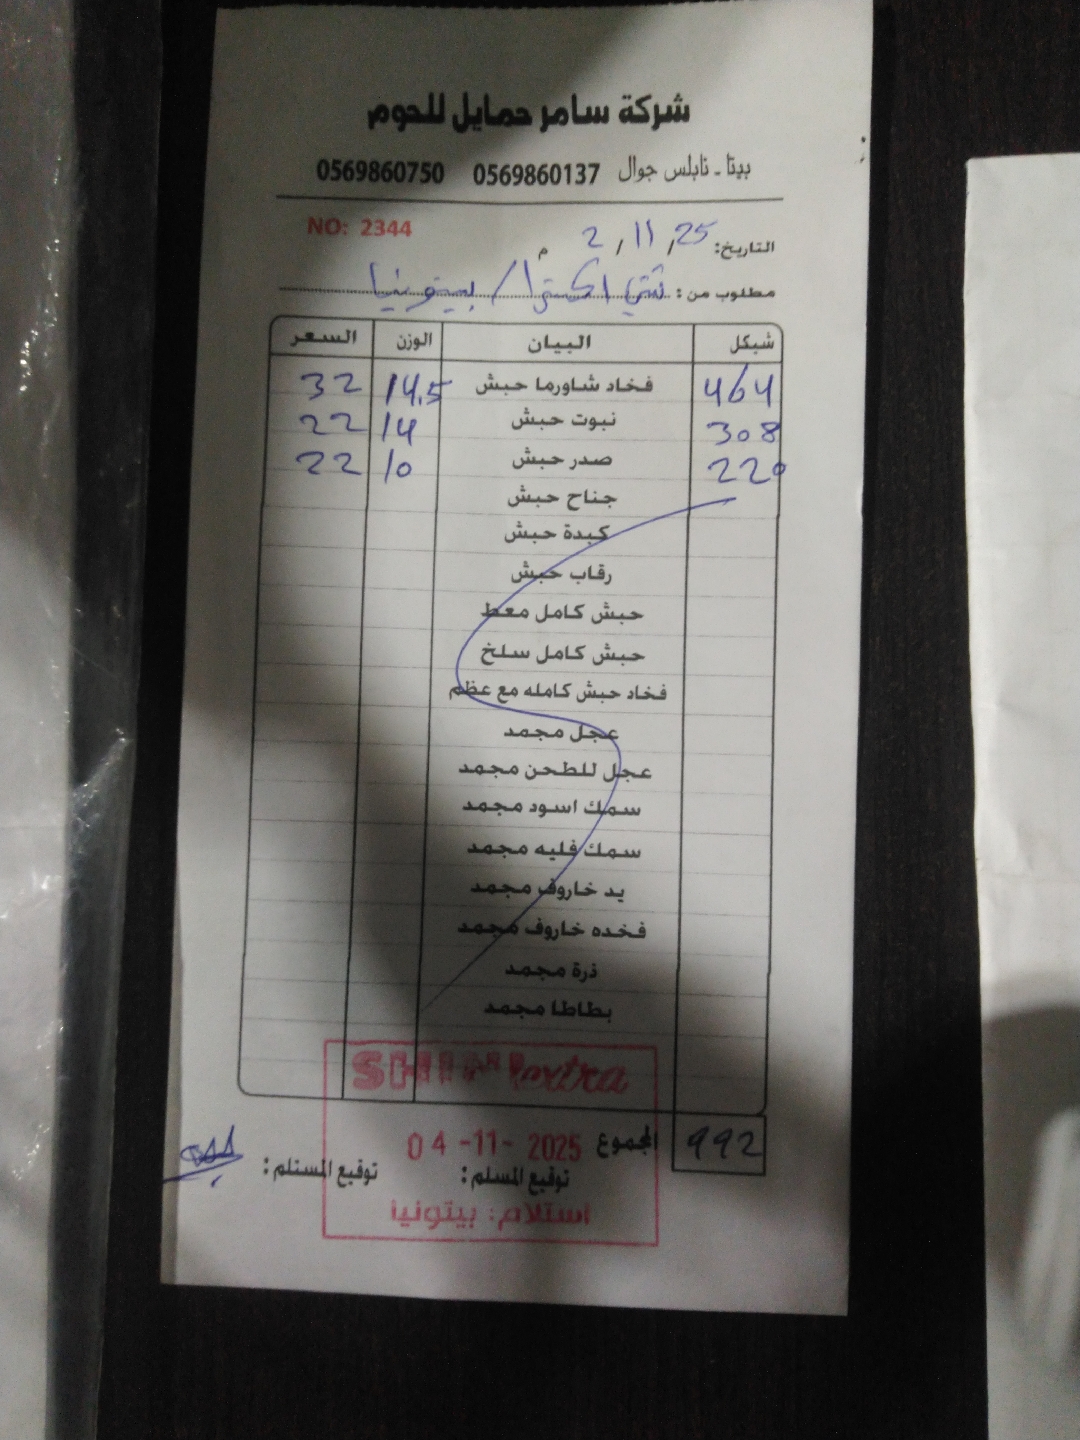 شركة سامر حمايل للحوم
بيتا - نابلس جوال 0569860137 0569860750
NO: 2344
التاريخ: 25 / 11 / 2 م
مطلوب من : شني اكسترا / بيتونيا
شيكل البيان الوزن السعر
464 فخاد شاورما حبش 14.5 32
308 نبوت حبش 14 22
220 صدر حبش 10 22
جناح حبش
كبدة حبش
رقاب حبش
حبش كامل معط
حبش كامل سلخ
فخاد حبش كامله مع عظم
عجل مجمد
عجل للطحن مجمد
سمك اسود مجمد
سمك فليه مجمد
يد خاروف مجمد
فخده خاروف مجمد
ذرة مجمد
بطاطا مجمد
SHINI extra
992 المجموع
04 -11- 2025
توقيع المسلم : توقيع المستلم :
استلام: بيتونيا